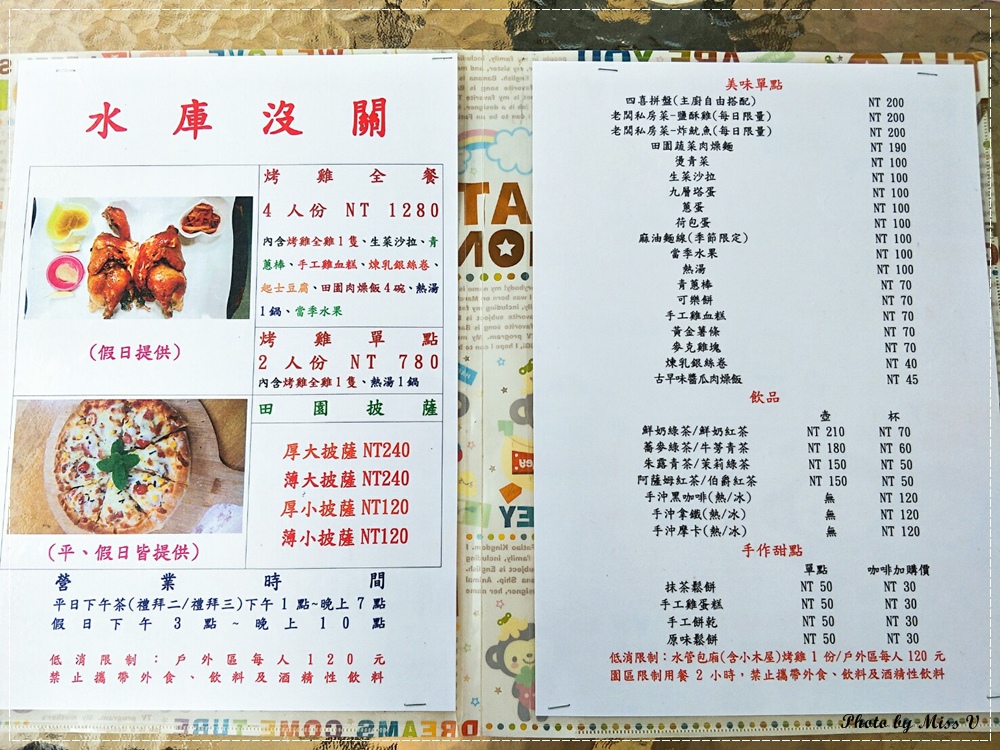 水庫沒關
烤雞全餐
4人份 NT 1280
內含烤雞全雞1隻、生菜沙拉、青
蔥棒、手工雞血糕、煉乳銀絲卷、
起士豆腐、田園肉燥飯4碗、熱湯
1鍋、當季水果
(假日提供)
烤雞單點
2人份 NT 780
內含烤雞全雞1隻、熱湯1鍋
田園披薩
厚大披薩NT240
薄大披薩NT240
厚小披薩NT120
薄小披薩NT120
(平、假日皆提供)
營業時間
平日下午茶(禮拜二/禮拜三)下午1點~晚上7點
假日下午3點~晚上10點
低消限制：戶外區每人120元
禁止攜帶外食、飲料及酒精性飲料
美味單點
四喜拼盤(主廚自由搭配) NT 200
老闆私房菜-鹽酥雞(每日限量) NT 200
老闆私房菜-炸魷魚(每日限量) NT 200
田園蔬菜肉燥麵 NT 190
燙青菜 NT 100
生菜沙拉 NT 100
九層塔蛋 NT 100
蔥蛋 NT 100
荷包蛋 NT 100
麻油麵線(季節限定) NT 100
當季水果 NT 100
熱湯 NT 100
青蔥棒 NT 70
可樂餅 NT 70
手工雞血糕 NT 70
黃金薯條 NT 70
麥克雞塊 NT 70
煉乳銀絲卷 NT 40
古早味醬瓜肉燥飯 NT 45
飲品
壺 杯
鮮奶綠茶/鮮奶紅茶 NT 210 NT 70
蕎麥綠茶/牛蒡青茶 NT 180 NT 60
朱露青茶/茉莉綠茶 NT 150 NT 50
阿薩姆紅茶/伯爵紅茶 NT 150 NT 50
手沖黑咖啡(熱/冰) 無 NT 120
手沖拿鐵(熱/冰) 無 NT 120
手沖摩卡(熱/冰) 無 NT 120
手作甜點
單點 咖啡加購價
抹茶鬆餅 NT 50 NT 30
手工雞蛋糕 NT 50 NT 30
手工餅乾 NT 50 NT 30
原味鬆餅 NT 50 NT 30
低消限制：水管包廂(含小木屋)烤雞1份/戶外區每人120元
園區限制用餐2小時，禁止攜帶外食、飲料及酒精性飲料
Photo by Miss V